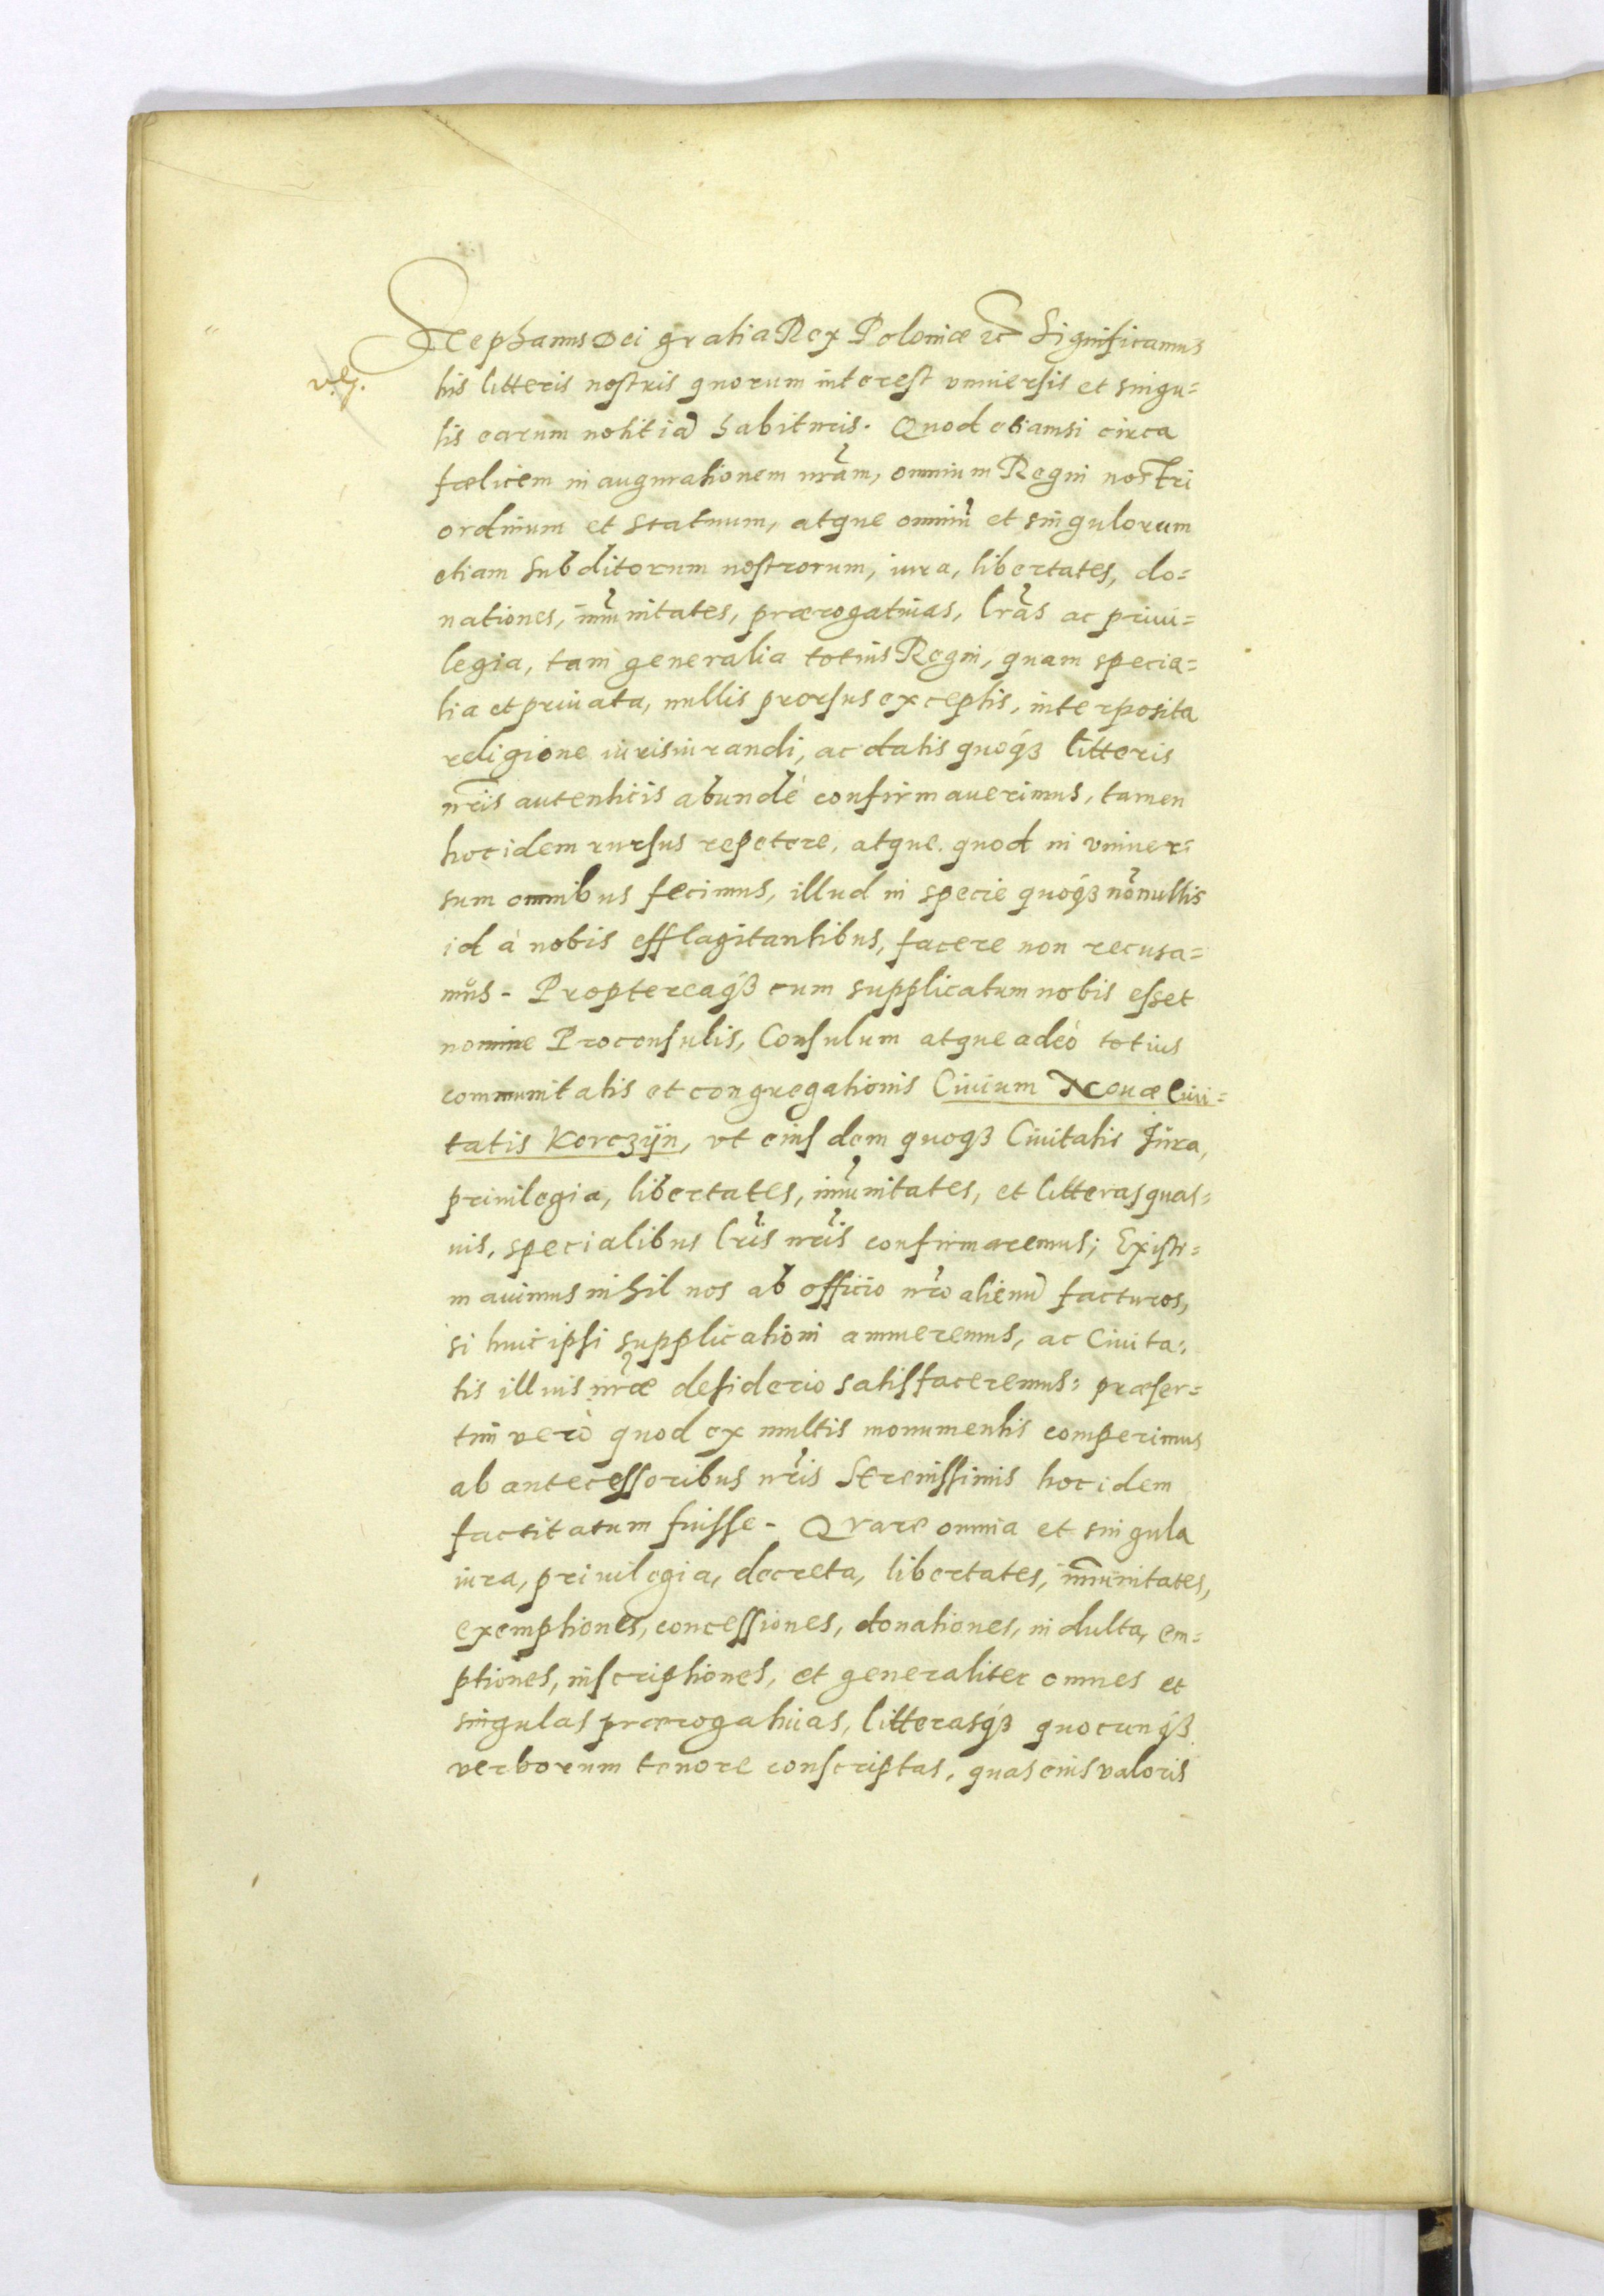 Stephanus Dei gratia Rex Poloniæ etc Significamus
his litteris nostris quorum interest vniuersis et singu=
lis earum notitiã habituris. Quod etiamsi circa
fœlicem inaugurationem nrãm, omnium Regni nostri
ordinum et statuum, atque omniũ et singulorum
etiam subditorum nostrorum, iura, libertates, do=
nationes, im̃unitates, prærogatiuas, lrãs ac priui=
legia, tam generalia totius Regni, quam specia=
lia et priuata, nullis prorsus exceptis, interposita
religione iurisiurandi, ac datis quoqȝ litteris
nr̃is autenticis abundè confirmauerimus, tamen
hoc idem rursus repetere, atque quod in vniuer=
sum omnibus fecimus, illud in specie quoqȝ nõnullis
id à nobis efflagitantibus, facere non recusa=
mus. Proptereaqȝ cum supplicatum nobis esset
nomine Proconsulis, Consulum atque adeò totius
communitatis et congregationis Ciuium Nouæ Ciui=
tatis Korczÿn, vt eiusdem quoqȝ Ciuitatis Iura,
priuilegia, libertates, im̃unitates, et litteras quas=
uis, specialibus lr̃is nr̃is confirmaremus; Existi=
mauimus nihil nos ab officio nr̃o alienũ facturos,
si huic ipsi supplicationi annueremus, ac Ciuita=
tis illius nr̃æ desiderio satisfaceremus; præser=
tim verò quod ex multis monumentis comperimus
ab antecessoribus nr̃is Serenissimis hoc idem
factitatum fuisse. Quare omnia et singula
iura, priuilegia, decreta, libertates, im̃unitates,
exemptiones, concessiones, donationes, indulta, em=
ptiones, inscriptiones, et generaliter omnes et
singulas prærogatiuas, litterasqȝ quocunqȝ
verborum tenore conscriptas, quas eius valoris